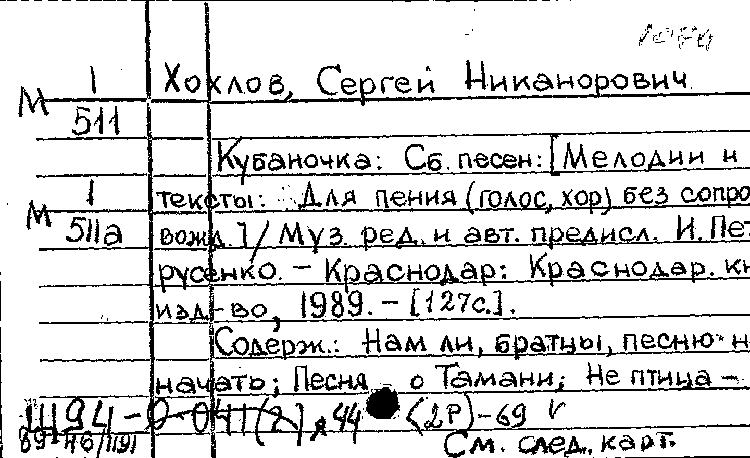 М 1/511 Хохлов, Сергей Никанорович
Кубаночка: Сб. песен: [Мелодии и
М 1/511а тексты: Для пения (голос, хор) без сопро
вожд.] / Муз. ред. и авт. предисл. И. Пет
русенко. – Краснодар: Краснодар. кн
изд-во, 1989. – [127с.].
Содерж.: Нам ли, братцы, песню н
начать; Песня о Тамани; Не птица –
44 (2Р)-69 V
См. след. карт.